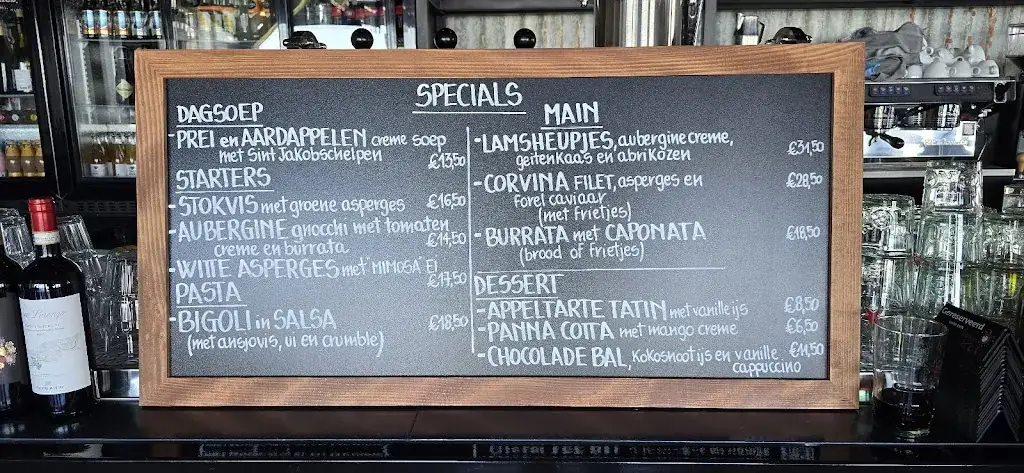 SPECIALS
DAGSOEP
-PREI en AARDAPPELEN creme soep
met Sint Jakobschelpen €13,50
STARTERS
-STOKVIS met groene asperges €16,50
-AUBERGINE gnocchi met tomaten
creme en burrata €14,50
-WITTE ASPERGES met "MIMOSA" EI €14,50
PASTA
-BIGOLI in SALSA €18,50
(met ansjovis, ui en crumble)
MAIN
-LAMSHEUPJES, aubergine creme,
geitenkaas en abrikozen €31,50
-CORVINA FILET, asperges en €28,50
forel caviaar
(met frietjes)
-BURRATA met CAPONATA €18,50
(brood of frietjes)
DESSERT
-APPELTARTE TATIN met vanille ijs €8,50
-PANNA COTTA met mango creme €6,50
-CHOCOLADE BAL, kokosnoot ijs en vanille €11,50
cappuccino
Gereserveerd